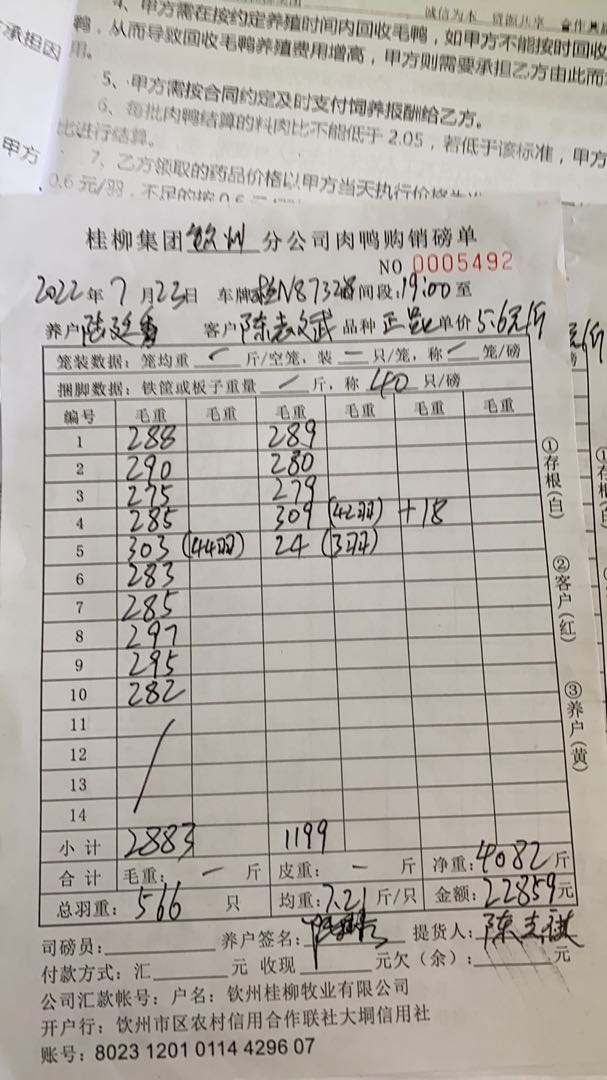 诚信为本 资源共享 合作
4、甲方需在按约定养殖时间内回收毛鸭，如甲方不能按时回收
鸭，从而导致回收毛鸭养殖费用增高，甲方则需要承担乙方由此而
承担因 用。
5、甲方需按合同约定及时支付饲养报酬给乙方。
6、每批肉鸭结算的料肉比不能低于 2.05，若低于该标准，甲方
比进行结算。
甲方
7、乙方领取的药品价格以甲方当天执行价格为
0.6 元/羽，不足的按 0.6
桂柳集团钦州分公司肉鸭购销磅单
NO 0005492
2022年7月23日 车牌桂N87328 间段:19:00至
养户 客户陈志武 品种 单价5.6元/斤
笼装数据：笼均重 - 斤/空笼，装 - 只/笼，称 - 笼/磅
捆脚数据：铁筐或板子重量 - 斤，称 40 只/磅
编号 毛重 毛重 毛重 毛重 毛重 毛重
1 288 289
2 290 280
3 275 279
4 285 309 (42羽) +18
5 303 (44羽) 24 (3羽)
6 283
7 285
8 297
9 295
10 282
11
12
13
14
小计 2883 1199
合计 毛重: - 斤 皮重: - 斤 净重:4082斤
总羽重: 566 只 均重:7.21斤/只 金额:22859元
司磅员: 养户签名: 提货人:陈志祺
付款方式：汇 元 收现 元欠（余）: 元
公司汇款帐号：户名：钦州桂柳牧业有限公司
开户行：饮州市区农村信用合作联社大垌信用社
账号：8023 1201 0114 4296 07
①存根(白)
②客户(红)
③养户(黄)